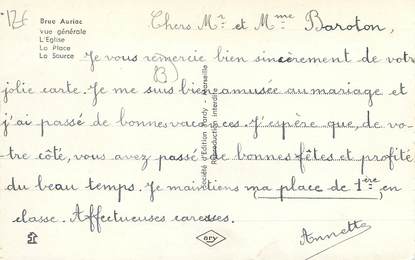 12F
Brue Auriac
vue générale
L'Eglise
La Place
La Source
Chers Mr et Mme Baroton,
Je vous remercie bien sincèrement de votre
jolie carte. Je me suis bien amusée au mariage et
j'ai passé de bonnes vacances. J'espère que, de vo-
tre côté, vous avez passé de bonnes fêtes et profité
du beau temps. Je maintiens ma place de 1ère en
classe. Affectueuses caresses.
Annette
Société d'Edition Tardy - Marseille
Reproduction interdite
ary